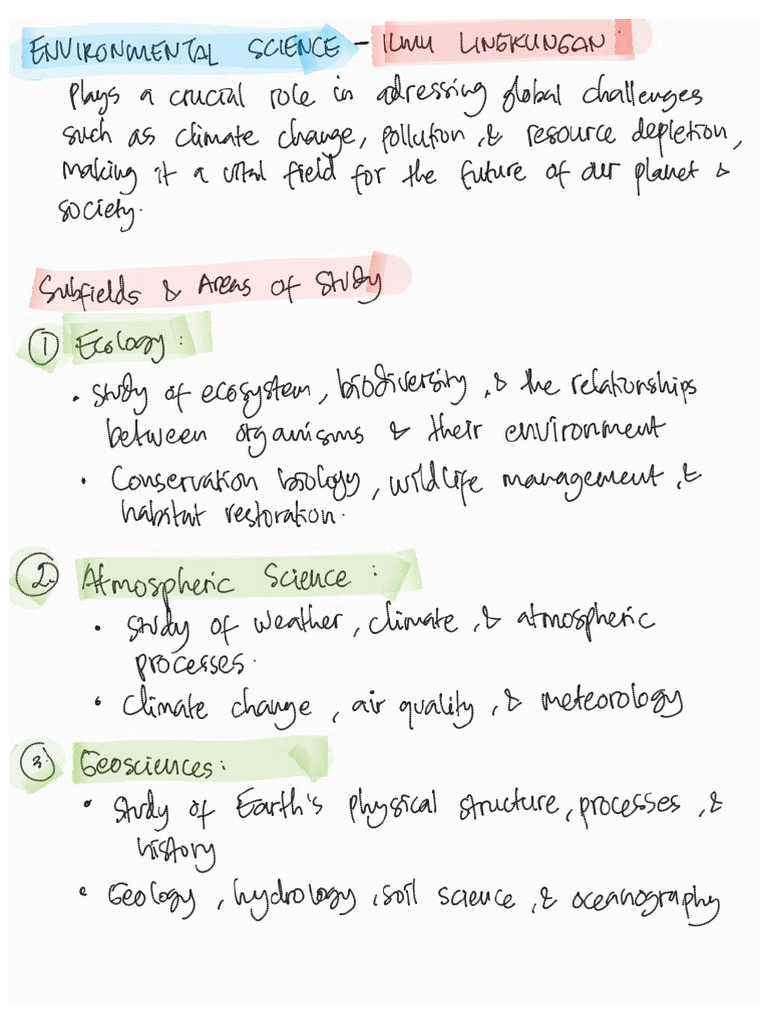 ENVIRONMENTAL SCIENCE - ILMU LINGKUNGAN.
Plays a crucial role in adressing global challenges
such as climate change, pollution, & resource depletion,
making it a vital field for the future of our planet &
society.
Subfields & Areas of Study
① Ecology:
• Study of ecosystem, biodiversity, & the relationships
between organisms & their environment
• Conservation biology, wildlife management, &
habitat restoration.
② Atmospheric Science:
• Study of weather, climate, & atmospheric
processes.
• Climate change, air quality, & meteorology
③ Geosciences:
• Study of Earth's physical structure, processes, &
history
• Geology, hydrology, soil science, & oceanography